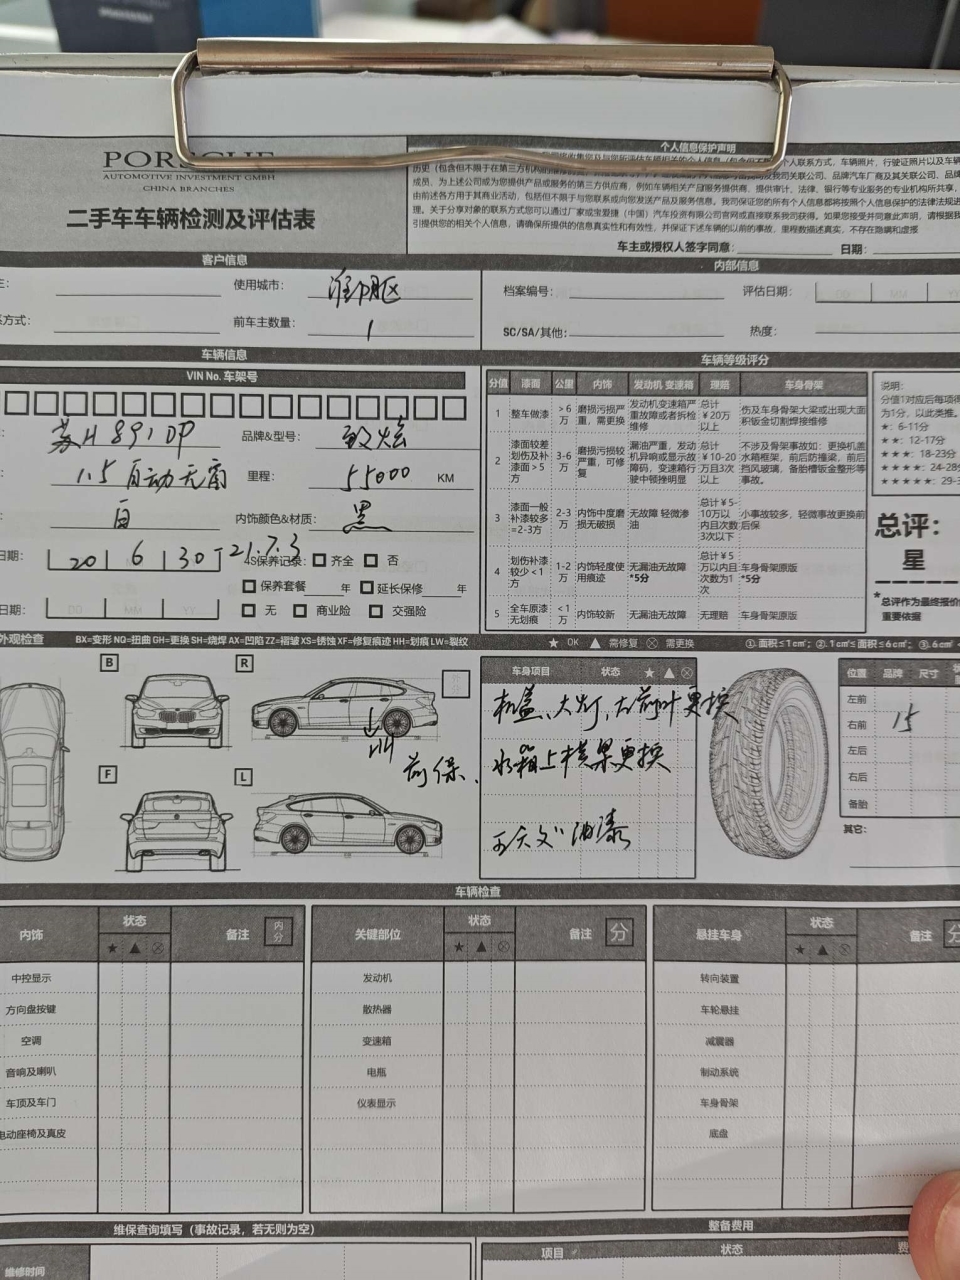 PORSCHE
AUTOMOTIVE INVESTMENT GMBH
CHINA BRANCHES
二手车车辆检测及评估表
个人信息保护声明
成员，为上述公司或为您提供产品或服务的第三方供应商，例如车辆相关产品服务提供商、提供审计、法律、银行等专业服务的专业机构所共享，
理。关于分享对象的联系方式您可以通过厂家或宝爱捷（中国）汽车投资有限公司官网或直接联系我司获得。如果您接受并同意此声明，请根据我
引提供您的相关个人信息，请确保所提供的信息真实性和有效性，并保证下述车辆的以前的事故，里程数描述真实，不存在隐瞒和虚报
车主或授权人签字同意： 日期：
客户信息 内部信息
使用城市： 档案编号： 评估日期：
系方式： 前车主数量： 1 SC/SA/其他： 热度：
车辆信息 车辆等级评分
VIN No. 车架号
苏H891DP 品牌&型号： 致炫
1.5 自动无窗 里程： 55000 KM
白 内饰颜色&材质： 黑
日期： 20 6 30 - 21.7.3 4S保养记录： 齐全 否
保养套餐 年 延长保修 年
日期： DD MM YY 无 商业险 交强险
分值 漆面 公里 内饰 发动机 变速箱 理赔 车身骨架
1 整车做漆 >6万 磨损污损严重，需更换 发动机变速箱严重故障或者拆检维修 总计￥20万以上 伤及车身骨架大梁或出现大面积钣金切割焊接维修
2 漆面较差划伤及补漆面>5方 3-6万 磨损污损较严重，可修复 漏油严重，发动机异响或显示故障码，变速箱行驶中顿挫明显 总计￥10-20万且3次以上 不涉及骨架事故如：更换机盖水箱框架，前后防撞梁，前后挡风玻璃，备胎槽钣金整形等事故。
3 漆面一般补漆较多=2-3方 2-3万 内饰中度磨损无破损 无故障 轻微渗油 总计￥5-10万以内且次数3次以下 小事故较多，轻微事故更换前后保
4 划伤补漆较少<1方 1-2万 内饰轻度使用痕迹 无漏油无故障 *5分 总计￥5万以内且次数为1次 车身骨架原版 *5分
5 全车原漆无划痕 <1万 内饰较新 无漏油无故障 无理赔 车身骨架原版
说明：
分值1对应后每项得
为1分，以此类推。
★：6-11分
★★：12-17分
★★★：18-23分
★★★★：24-28分
★★★★★：29-3
总评：
星
*总评作为最终报价
重要依据
外观检查 BX=变形 NQ=扭曲 GH=更换 SH=烧焊 AX=凹陷 ZZ=褶皱 XS=锈蚀 XF=修复痕迹 HH=划痕 LW=裂纹 ★ OK ▲ 需修复 ⊗ 需更换 ①.面积≤1cm²；②.1cm²≤面积≤6cm²；③.6cm²
B R
F L
前保、
车身项目 状态 ★ ▲ ⊗
机盖、大灯，右前叶更换
水箱上横梁更换
油漆
位置 品牌 尺寸
左前
右前 15
左后
右后
备胎
其它：
车辆检查
内饰 状态 备注 内分
★ ▲ ⊗
中控显示
方向盘按键
空调
音响及喇叭
车顶及车门
电动座椅及真皮
关键部位 状态 备注 分
★ ▲ ⊗
发动机
散热器
变速箱
电瓶
仪表显示
悬挂车身 状态 备注 分
★ ▲ ⊗
转向装置
车轮悬挂
减震器
制动系统
车身骨架
底盘
维保查询填写（事故记录，若无则为空） 整备费用
维修时间 项目 状态 费